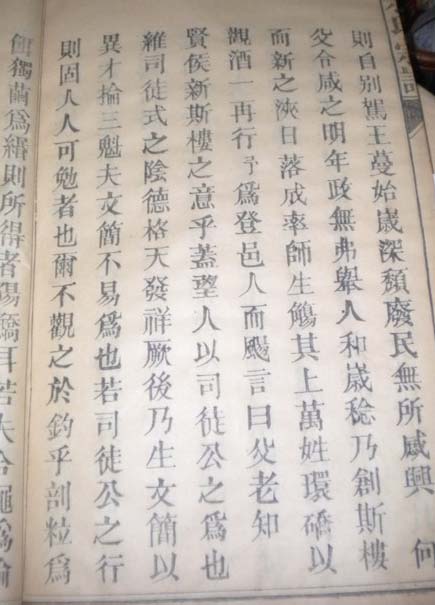 則自別駕王蔓始歲深頹廢民無所感興 何
父令咸之明年政無弗舉人和歲稔乃創斯樓
而新之浹日落成率師生觴其上萬姓環礄以
觀酒一再行予為登邑人而颺言曰父老知
賢侯新斯樓之意乎蓋望人以司徒公之為也
維司徒式之陰德格天發祥厥後乃生文簡以
異才掄三魁夫文簡不易為也若司徒公之行
則固人人可勉者也爾不觀之於釣乎剖粒為
獨繭為緡則所得者陽鱎耳若夫合繩為綸